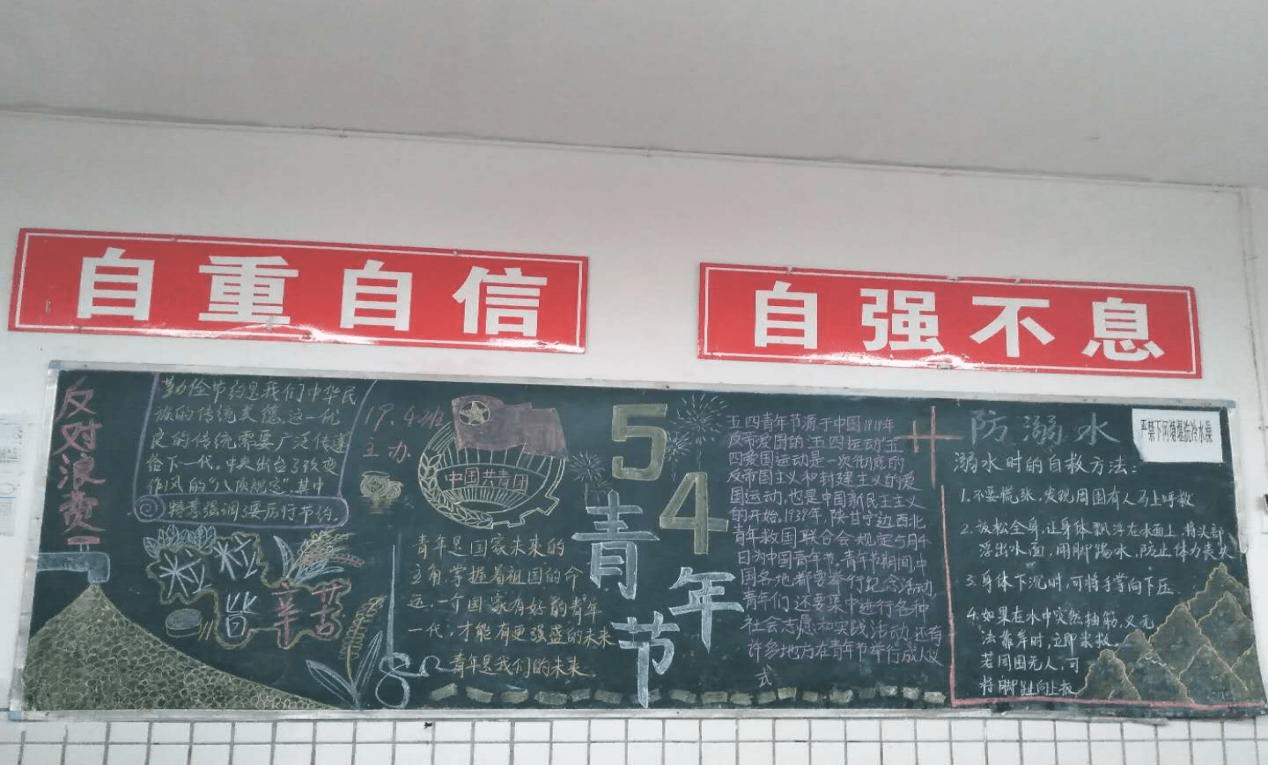 自重自信
自强不息
反对浪费
勤俭节约是我们中华民
族的传统美德,这一优
良的传统需要广泛传递
给下一代,中央出台了改变
作风的“八项规定”,其中
特意强调:要厉行节约.
粒粒
皆辛苦
19.4班
主办
中国共青团
青年是国家未来的
主角,掌握着祖国的命
运,一个国家有好的青年
一代,才能有更强盛的未来
青年是我们的未来.
54
青年节
五四青年节源于中国1919年
反帝爱国的五四运动五
四爱国运动是一次彻底的
反帝国主义和封建主义的爱
国运动,也是中国新民主主义
的开始,1939年,陕甘宁边西北
青年救国联合会规定5月4
日为中国青年节,青年节期间,中
国各地都要举行纪念活动,
青年们还要集中进行各种
社会志愿和实践活动,还有
许多地方在青年节举行成人仪
式
防溺水
溺水时的自救方法:
1.不要慌张,发现周围有人马上呼救
2.放松全身,让身体飘浮在水面上,将头部
浮出水面,用脚踢水,防止体力丧失
3.身体下沉时,可将手掌向下压
4.如果在水中突然抽筋,又无
法靠岸时,立即求救
若周围无人,可
将脚趾向上扳